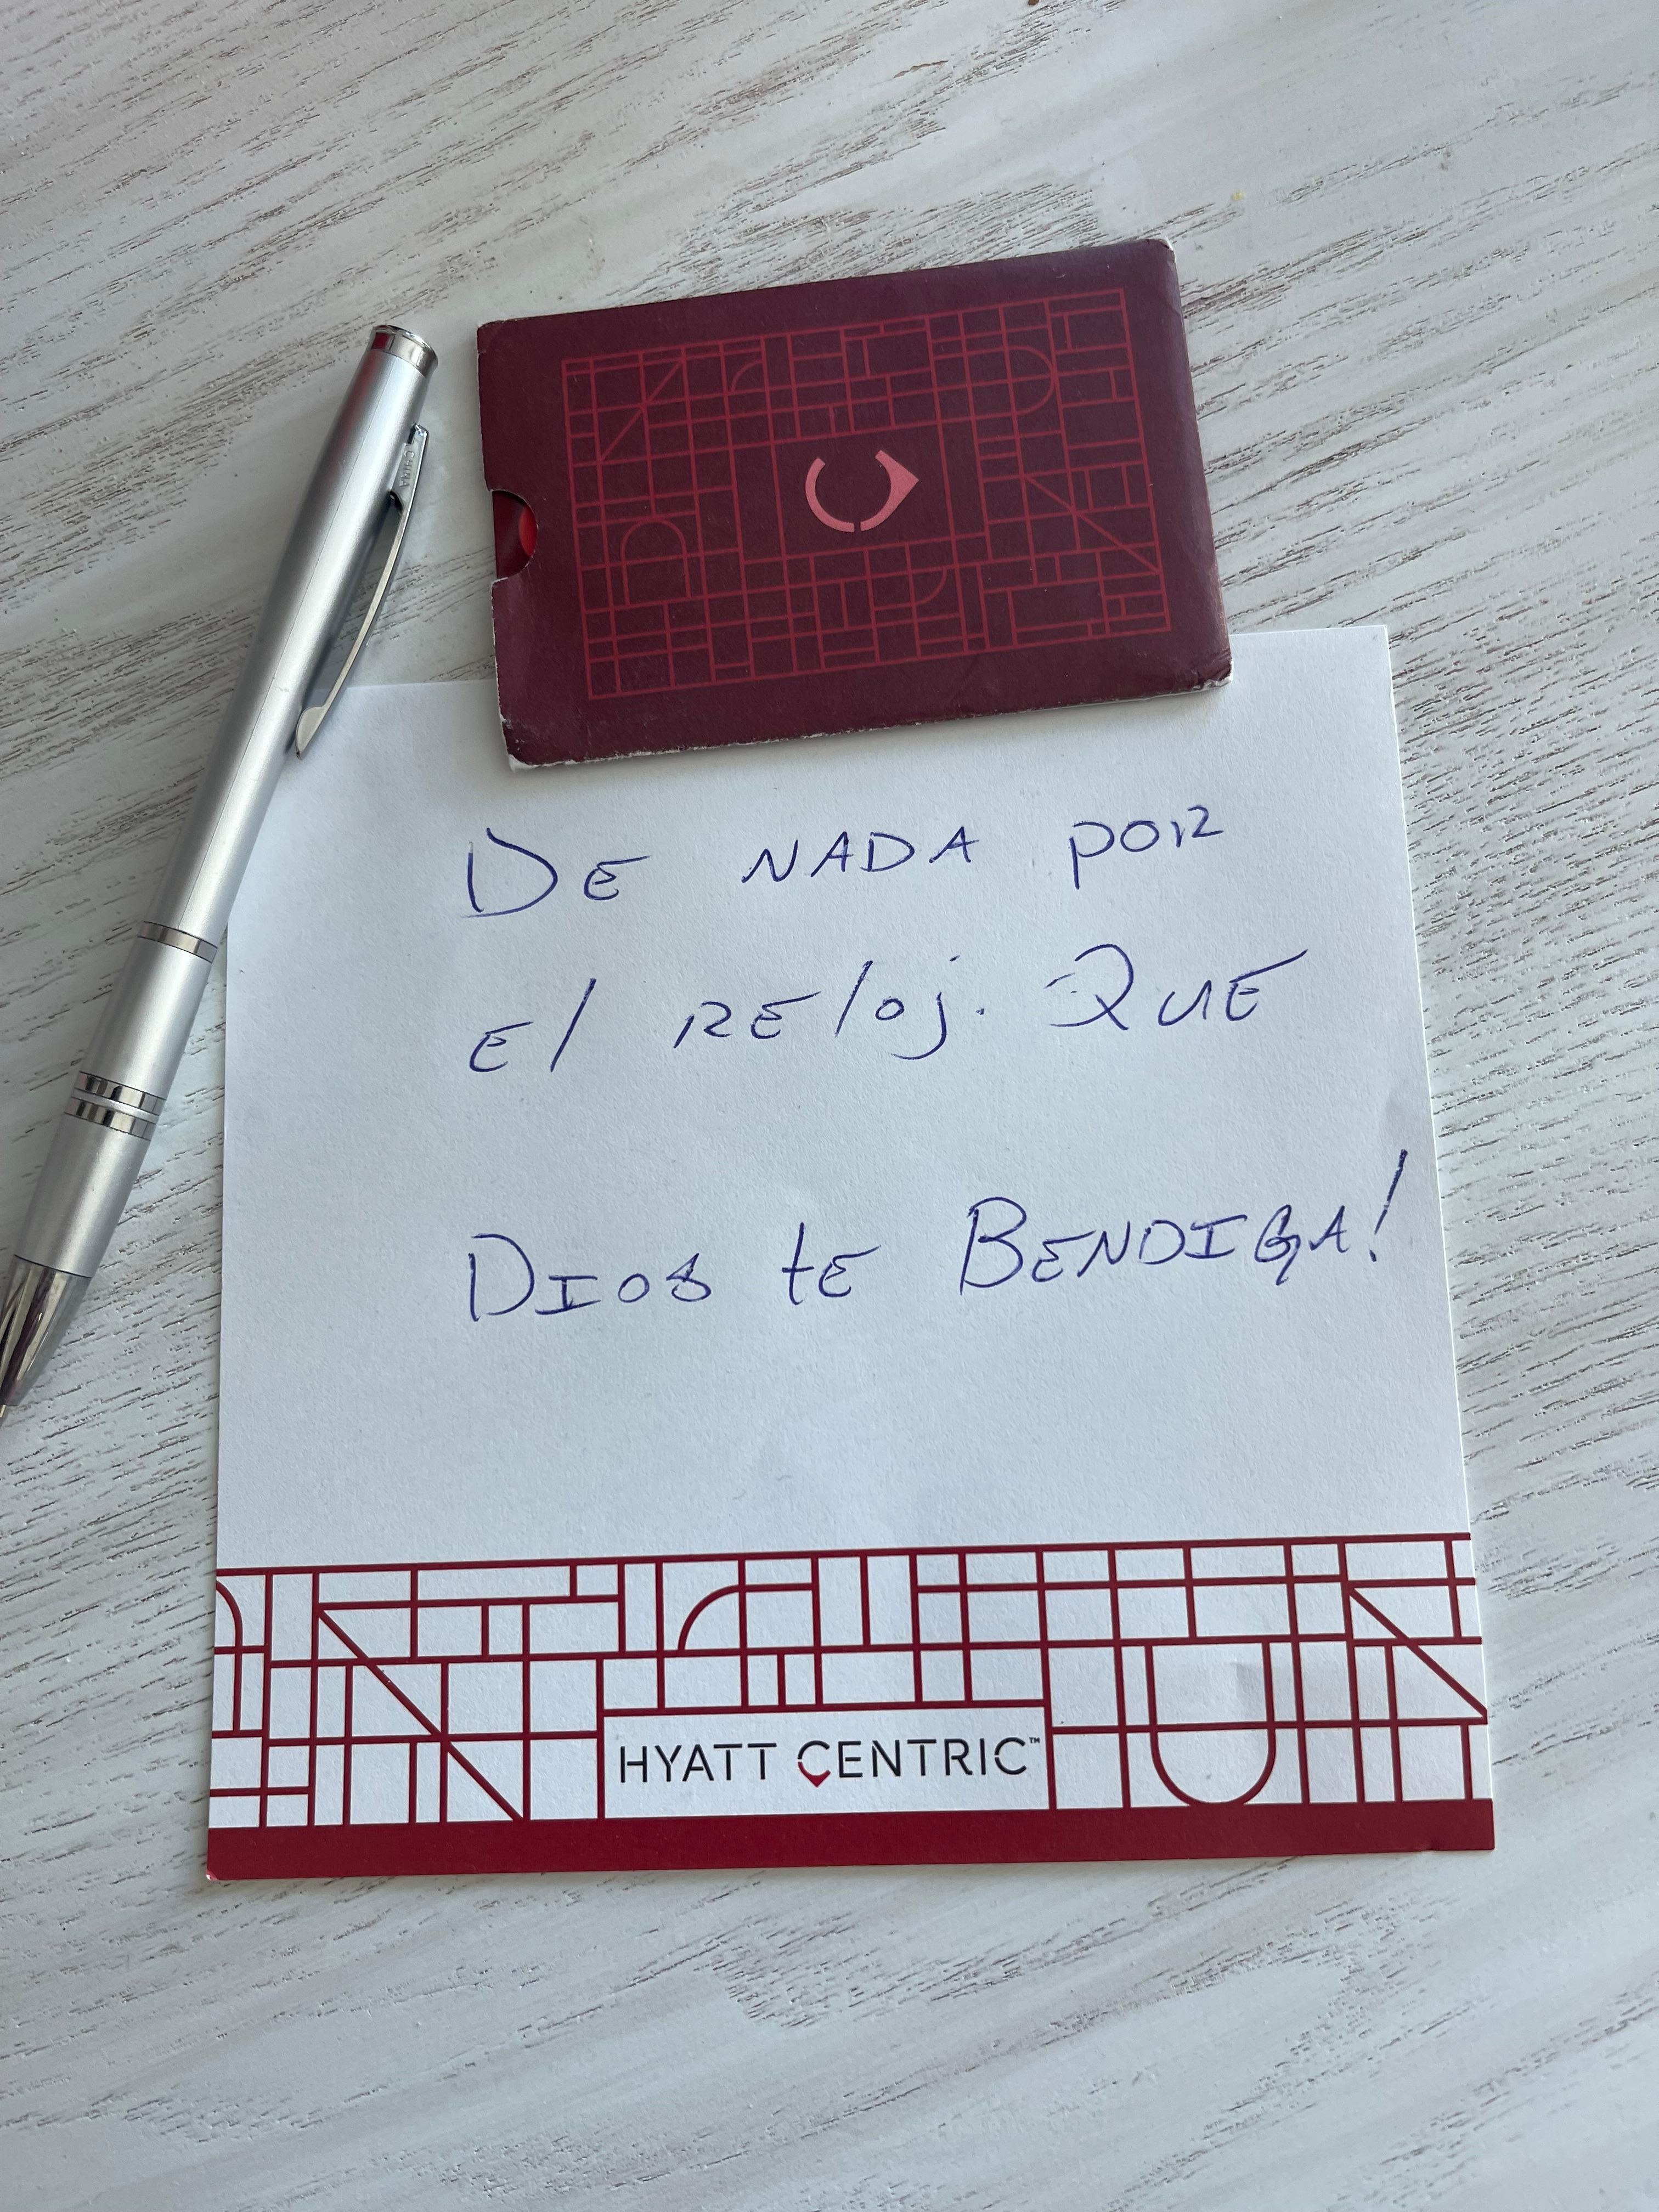 DE NADA POR
El REloj. QUE
DIOS tE BENDIGA!
HYATT CENTRIC™
CHINA